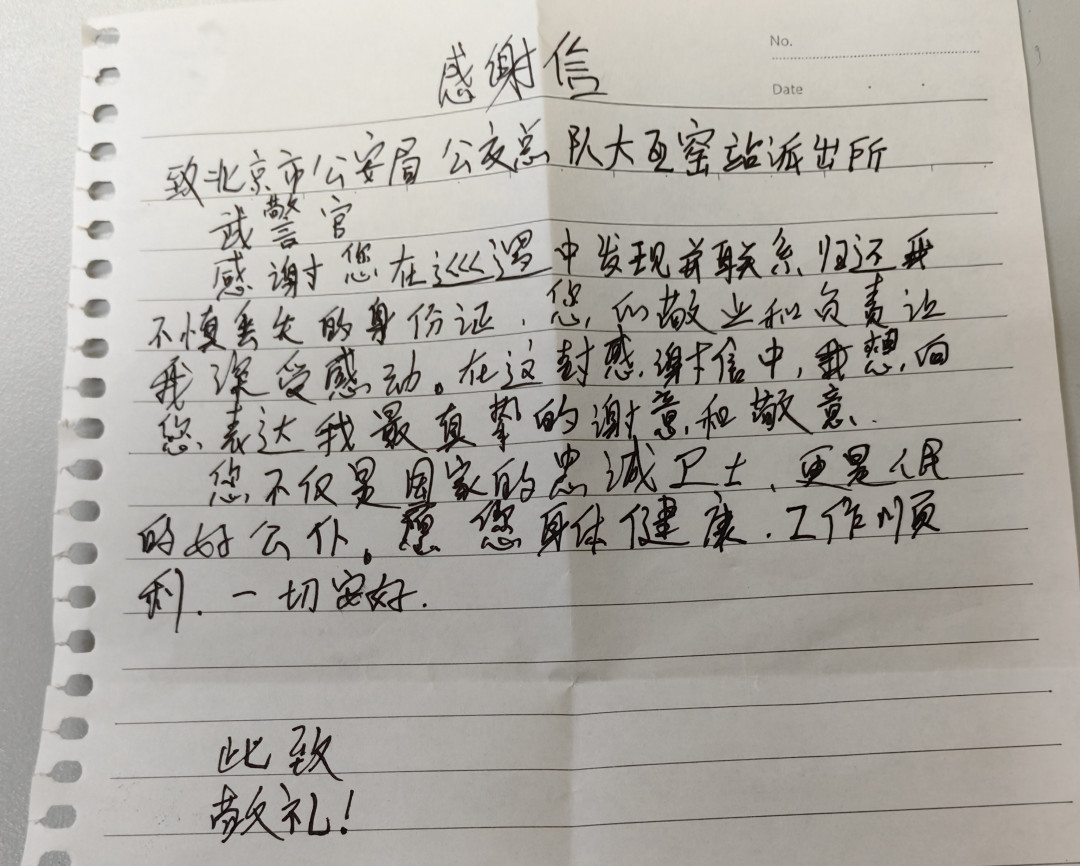 No.
Date
感谢信
致北京市公安局公交总队大瓦窑站派出所
武警官
感谢您在巡逻中发现并联系归还我
不慎丢失的身份证，您们敬业和负责让
我深受感动。在这封感谢信中，我想向
您表达我最真挚的谢意和敬意.
您不仅是国家的忠诚卫士、更是人民
的好公仆。愿您身体健康.工作顺
利.一切安好.
此致
敬礼!